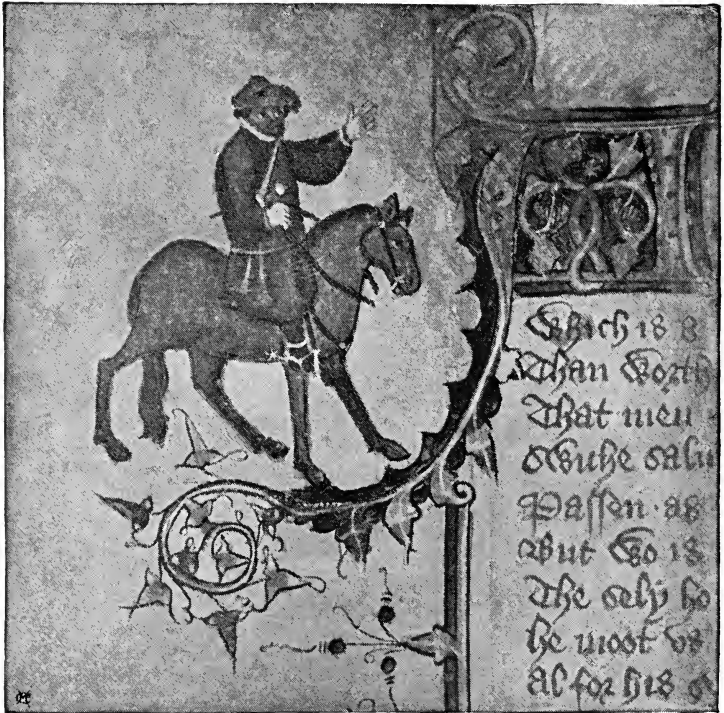 Which is a
Than worth
That men
Swiche salu
Passen as
But wo is
The sely ho
he moot vs
Al for his o